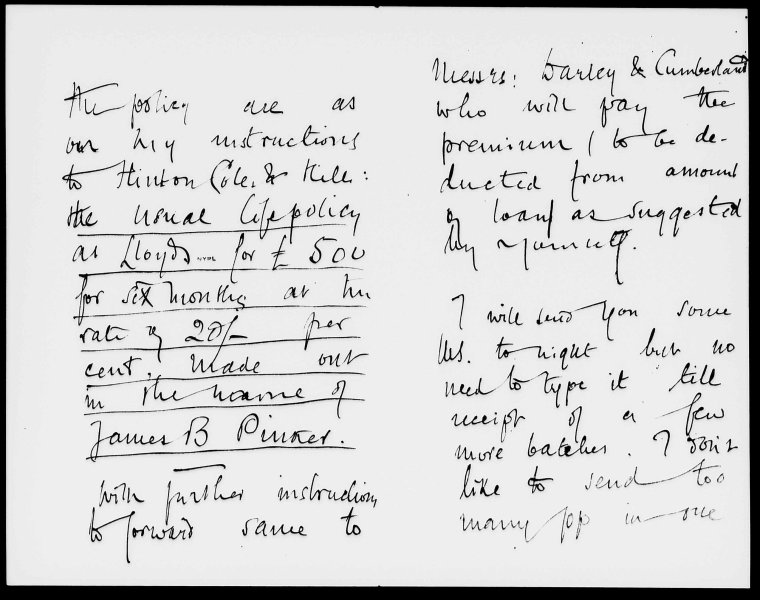 The policy are as
our my instructions
to Hinton Cole, & Kells:
the usual life policy
at Lloyds for £ 500
for six months at the
rate of 20/- per
cent, made out
in the name of
James B Pinker.
With further instructions
to forward same to
Messrs: Darley & Cumberland
who will pay the
premium (to be de-
ducted from amount
of loan) as suggested
by yourself.
I will send you some
MS. to night but no
need to type it till
receipt of a few
more batches. I don't
like to send too
many pp in one